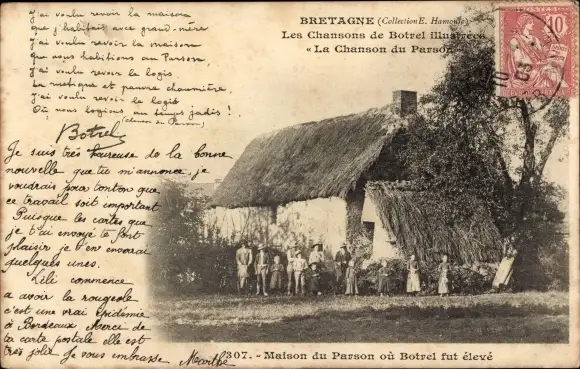 J'ai voulu revoir la maison
que j'habitait avec grand-mère
J'ai voulu revoir la maison
que nous habitions au Parson
J'ai voulu revoir le logis.
La rustique et pauvre chaumière
J'ai voulu revoir le logis
Où nous logions au temps jadis !
Botrel (chanson du Parson)
Je suis très heureuse de la bonne
nouvelle que tu m'annonce, je
voudrais pour tonton que
ce travail soit important
Puisque les cartes que
je t'ai envoyé te font
plaisir je t'en enverrai
quelques unes.
Lili commence
a avoir la rougeole
c'est une vrai épidémie
à Bordeaux Merci de
ta carte postale elle est
très jolie Je vous embrasse Marthe
BRETAGNE (Collection E. Hamonic)
Les Chansons de Botrel illustrées
« La Chanson du Parson »
10
10
03
307. - Maison du Parson où Botrel fut élevé